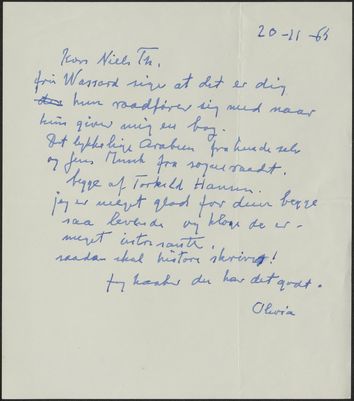 20-11-65
Kære Niels Th.
fru Wassard siger at det er dig
hun raadfører sig med naar
hun giver mig en bog.
Det lykkelige Arabien fra hende selv
og Jens Munk fra
begge af Torkild Hansen.
jeg er meget glad for dem begge
saa levende og kloge de er -
meget interesante.
saadan skal historie skrives!
Jeg haaber du har det godt.
Olivia